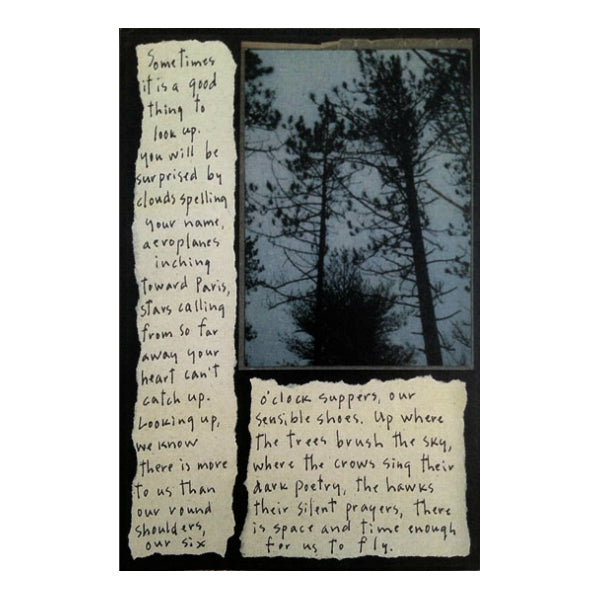 Sometimes
it is a good
thing to
look up.
You will be
surprised by
clouds spelling
your name,
aeroplanes
inching
toward Paris,
stars calling
from so far
away your
heart can't
catch up.
Looking up,
we know
there is more
to us than
our round
shoulders,
our six
o'clock suppers, our
sensible shoes. Up where
the trees brush the sky,
where the crows sing their
dark poetry, the hawks
their silent prayers, there
is space and time enough
for us to fly.